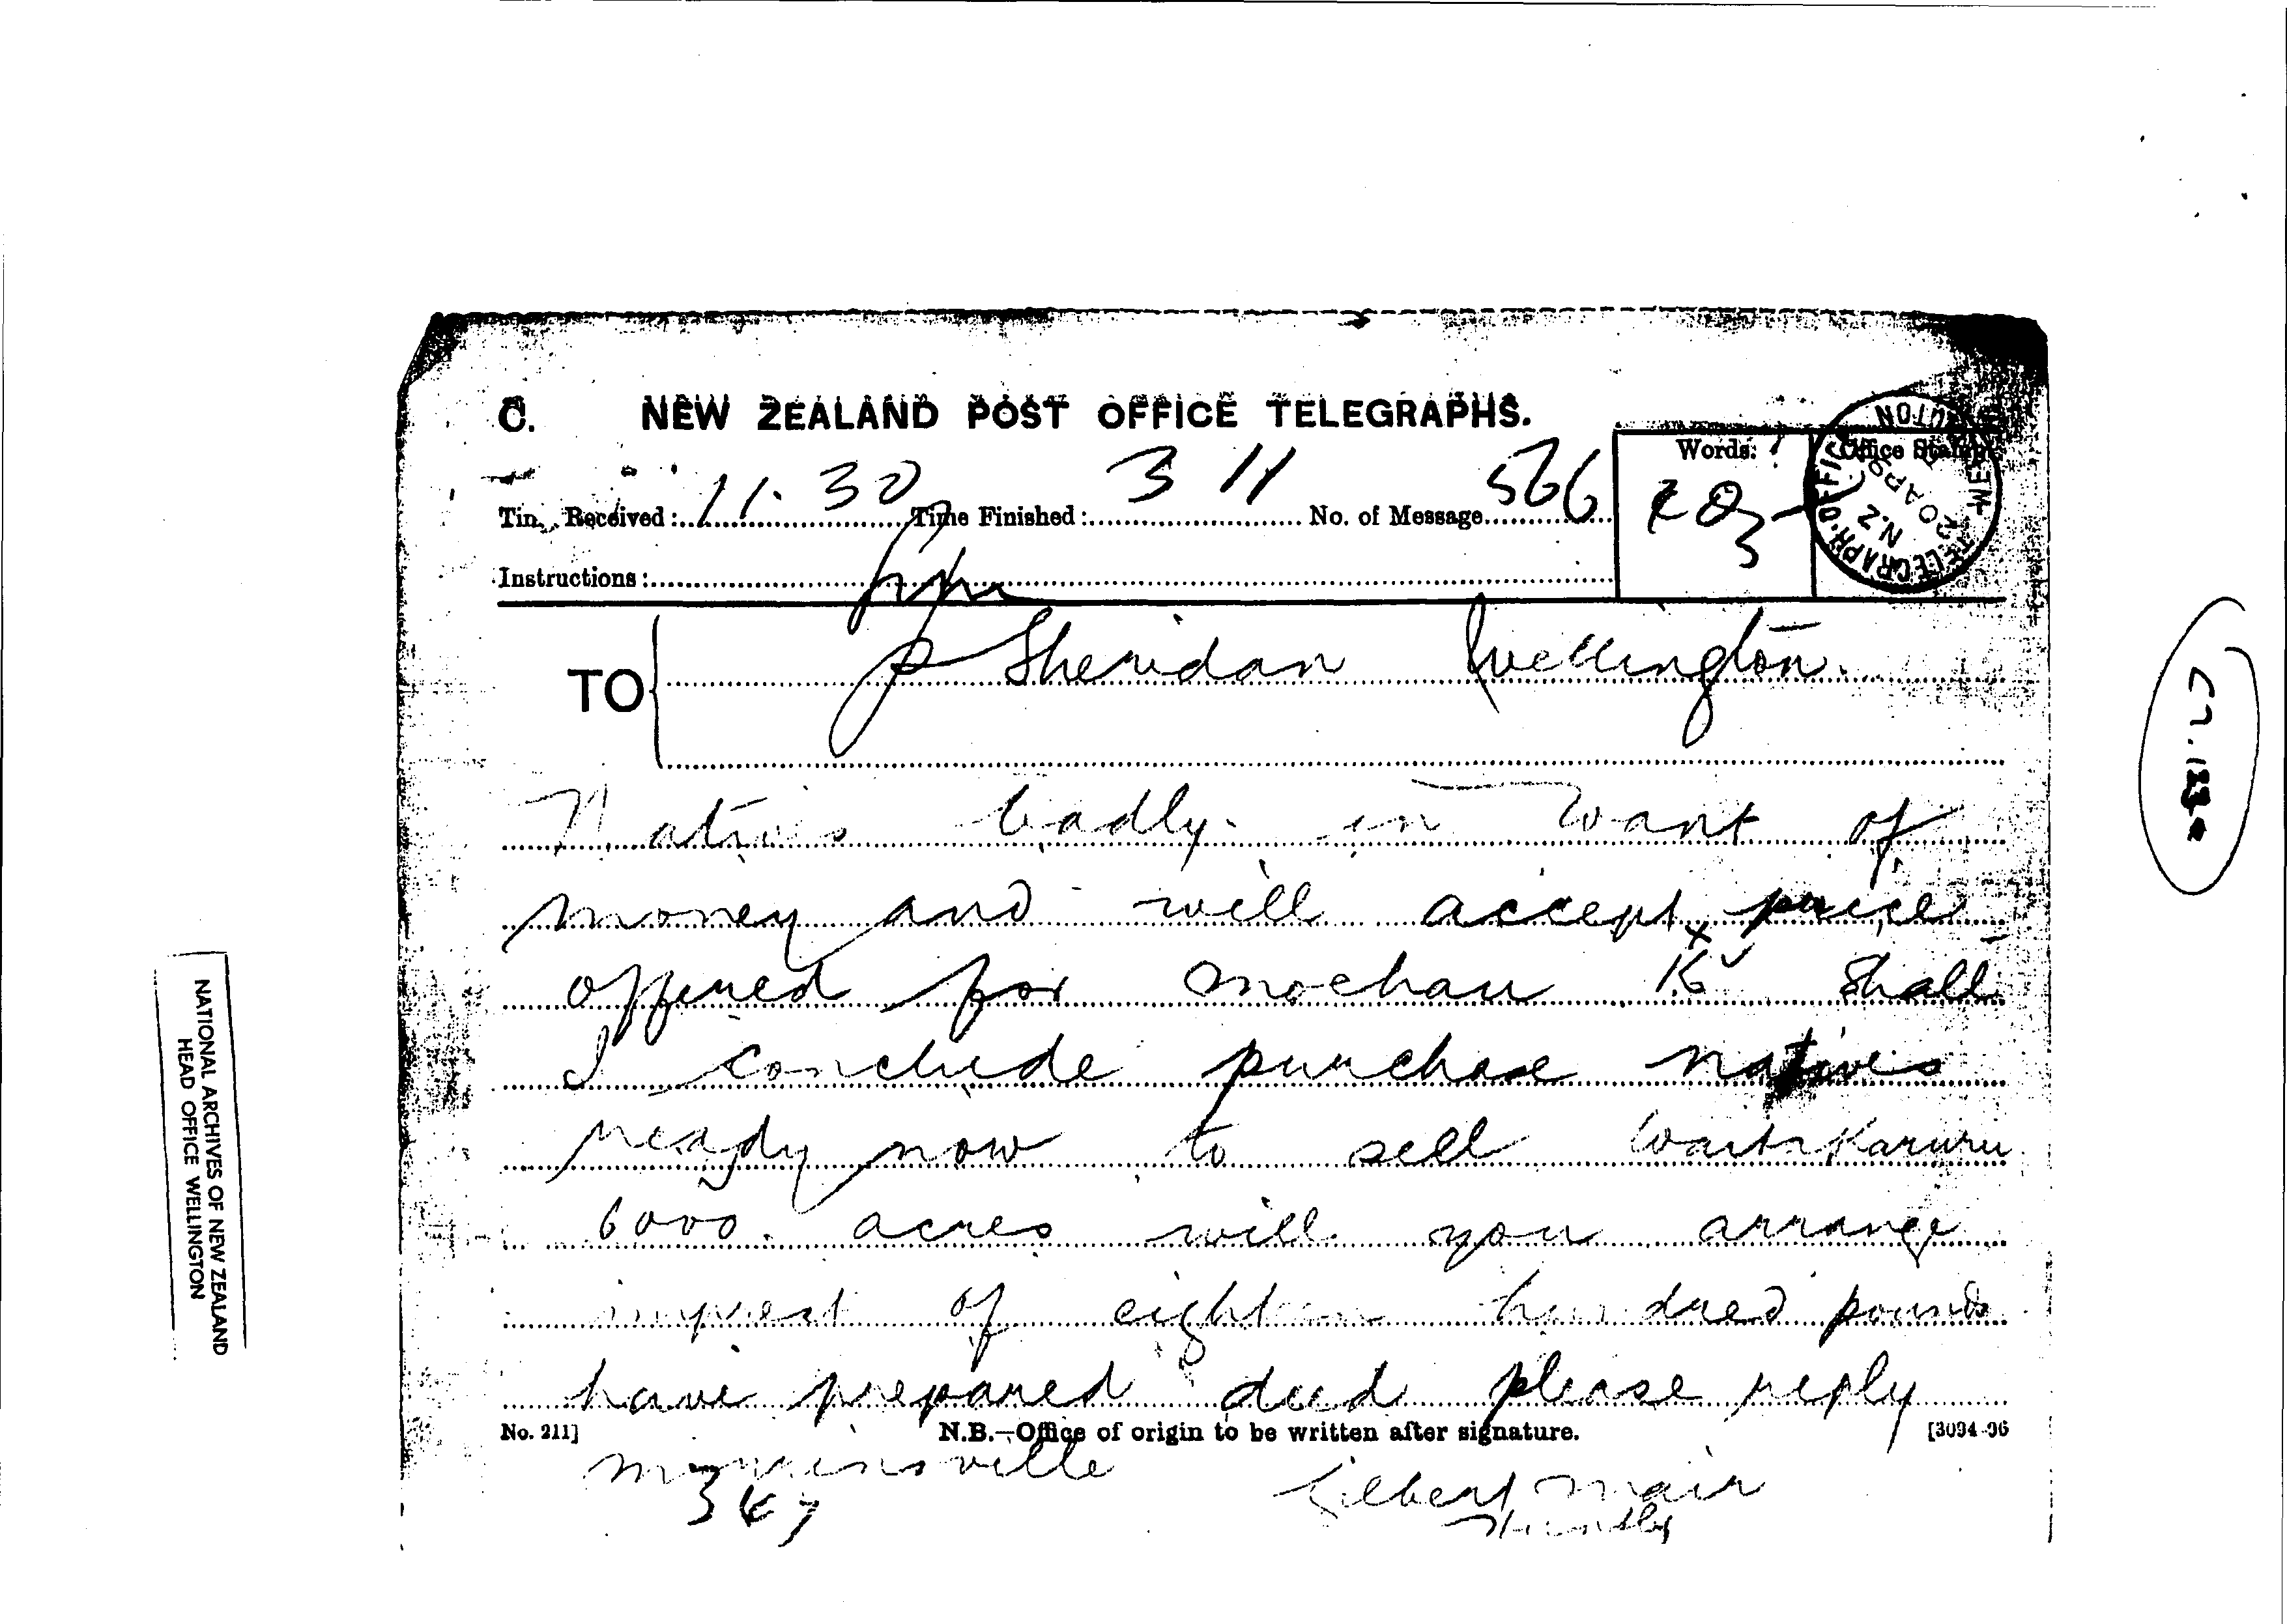 C. NEW ZEALAND POST OFFICE TELEGRAPHS.
Words. Office Stamp
Received: 11.30 Time Finished: 3 11 No. of Message 566
Instructions:
TELEGRAPH OFFICE
N.Z.
TO P Sheridan Wellington.
Natives badly in want of
money and will accept price
offered for moehau K Shall
I conclude purchase natives
ready now to sell Waitakaruru
6000 acres will you arrange
imprest of eighteen hundred pounds
have prepared deed please reply
No. 211] N.B.—Office of origin to be written after signature. [3094-96
Morrinsville Gilbert Mair
347
NATIONAL ARCHIVES OF NEW ZEALAND
HEAD OFFICE WELLINGTON